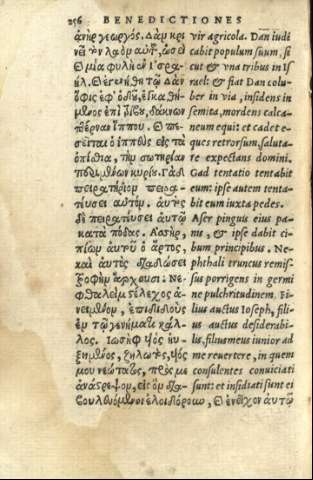 256 BENEDICTIONES
ἀνὴρ γεωργός. Δὰν κρι
νεῖ τὸν λαὸν αὐτοῦ, ὡσεὶ
καὶ μία φυλὴ ἐν ἰσρα-
ήλ. καὶ γενηθήτω Δὰν
ὄφις ἐφ' ὁδοῦ, ἐγκαθή-
μενος ἐπὶ τρίβου, δάκνων
πτέρναν ἵππου. καὶ πε-
σεῖται ὁ ἱππεὺς εἰς τὰ
ὀπίσω, τὴν σωτηρίαν
περιμένων κυρίου. Γὰδ
πειρατήριον πειρα-
τεύσει αὐτόν. αὐτὸς
δὲ πειρατεύσει αὐτὸν
κατὰ πόδας. Ἀσὴρ,
πίων αὐτοῦ ὁ ἄρτος,
καὶ αὐτὸς διαδώσει
τροφὴν ἄρχουσι. Νε-
φθαλεὶμ στέλεχος ἀ-
νειμένον, ἐπιδιδοὺς
ἐν τῷ γεννήματι κάλ-
λος. Ἰωσὴφ υἱὸς ηὐ-
ξημένος, ζηλωτὸς, υἱός
μου νεώτατος, πρός με
ἀνάστρεψον, εἰς ὃν δια-
βουλευόμενοι ἐλοιδόρουν, καὶ ἐνεῖχον αὐτῷ
vir agricola. Dan iudi
cabit populum suum, si
cut & vna tribus in Is
rael: & fiat Dan colu-
ber in via, insidens in
semita, mordens calca-
neum equi: et cadet e-
ques retrorsum, saluta-
re expectans domini.
Gad tentatio tentabit
eum: ipse autem tenta-
bit eum iuxta pedes.
Aser pinguis eius pa-
nis, & ipse dabit ci-
bum principibus. Ne-
phthali truncus remis-
sus porrigens in germi
ne pulchritudinem. Fi-
lius auctus Ioseph, fili-
us auctus desiderabi-
lis, filius meus iunior ad
me reuertere, in quem
consulentes conuiciati
sunt: et insidiati sunt ei